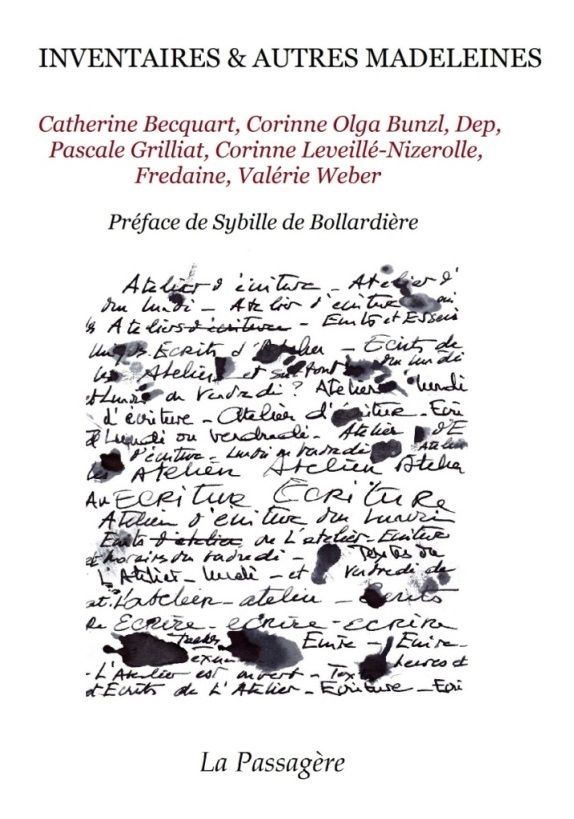 INVENTAIRES & AUTRES MADELEINES
Catherine Becquart, Corinne Olga Bunzl, Dep,
Pascale Grilliat, Corinne Leveillé-Nizerolle,
Fredaine, Valérie Weber
Préface de Sybille de Bollardière
Atelier d'écriture - Atelier d'
du lundi - Atelier d'écriture
Ateliers d'écriture - Ecrits et Essais
Ecrits d'Atelier - Ecrits de
Atelier et surtout du lundi
et Lundi ou Vendredi? Atelier lundi
d'écriture - Atelier d'écriture - Ecri
Lundi ou vendredi - Atelier d'E
d'écriture - Lundi ou vendredi Atelier
Atelier Atelier Atelier
ECRITURE ECRITURE
Atelier d'écriture du lundi
Ecrits d'atelier de L'atelier - Ecriture
et horaires du vendredi - Textes de
L'Atelier - lundi - et vendredi de
L'atelier - atelier - Ecrits
ECRIRE - ecrire - ecrire
Textes Ecrire - Ecrire -
L'Atelier est ouvert - heures et
d'Ecrits de L'Atelier - Ecriture - Ecri
La Passagère